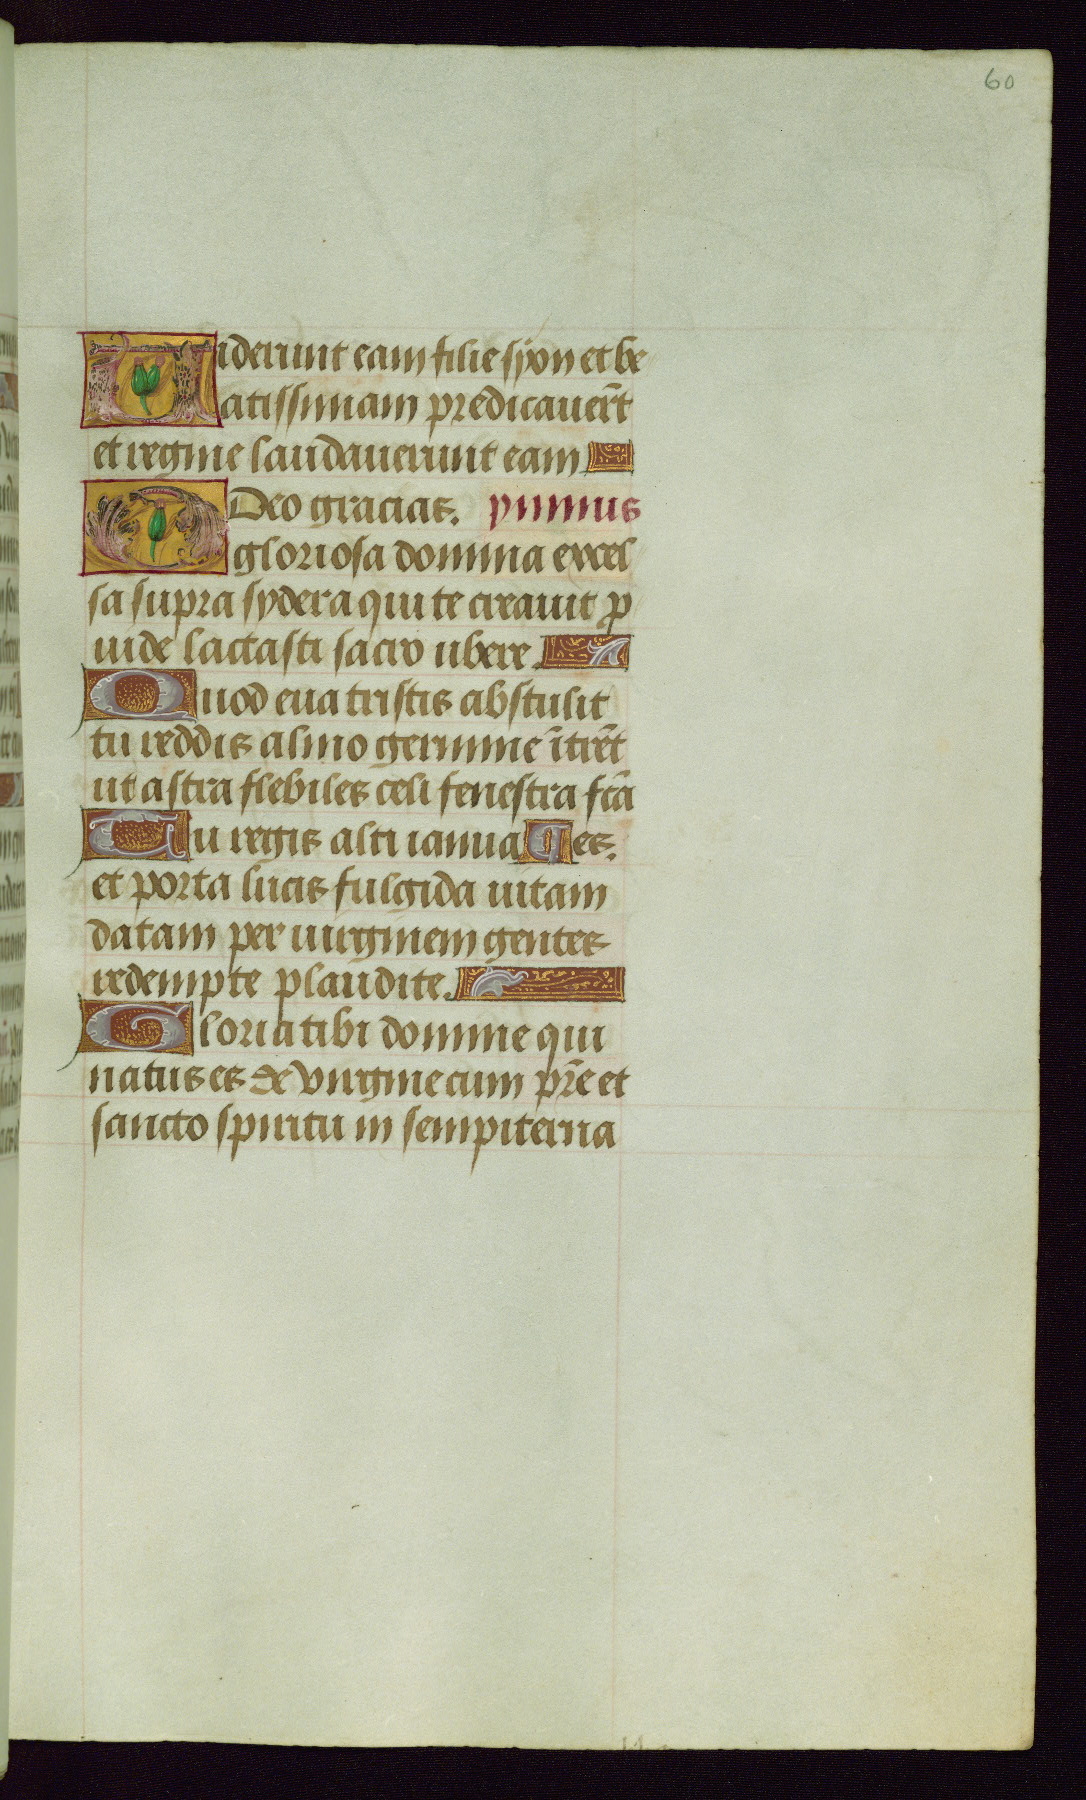 60
Uiderunt eam filie syon et be
atissimam predicauer̄t
et regine laudauerunt eam
Deo gracias. ymnus
O gloriosa domina excel
sa supra sydera qui te creauit ꝓ
uide lactasti sacro ubere.
Quod eua tristis abstulit
tu reddis almo germine ītrēt
ut astra flebiles celi fenestra fc̄a
es.
Tu regis alti ianua
et porta lucis fulgida uitam
datam per uirginem gentes
redempte plaudite.
Gloria tibi domine qui
natus es de virgine cum pr̄e et
sancto spiritu in sempiterna